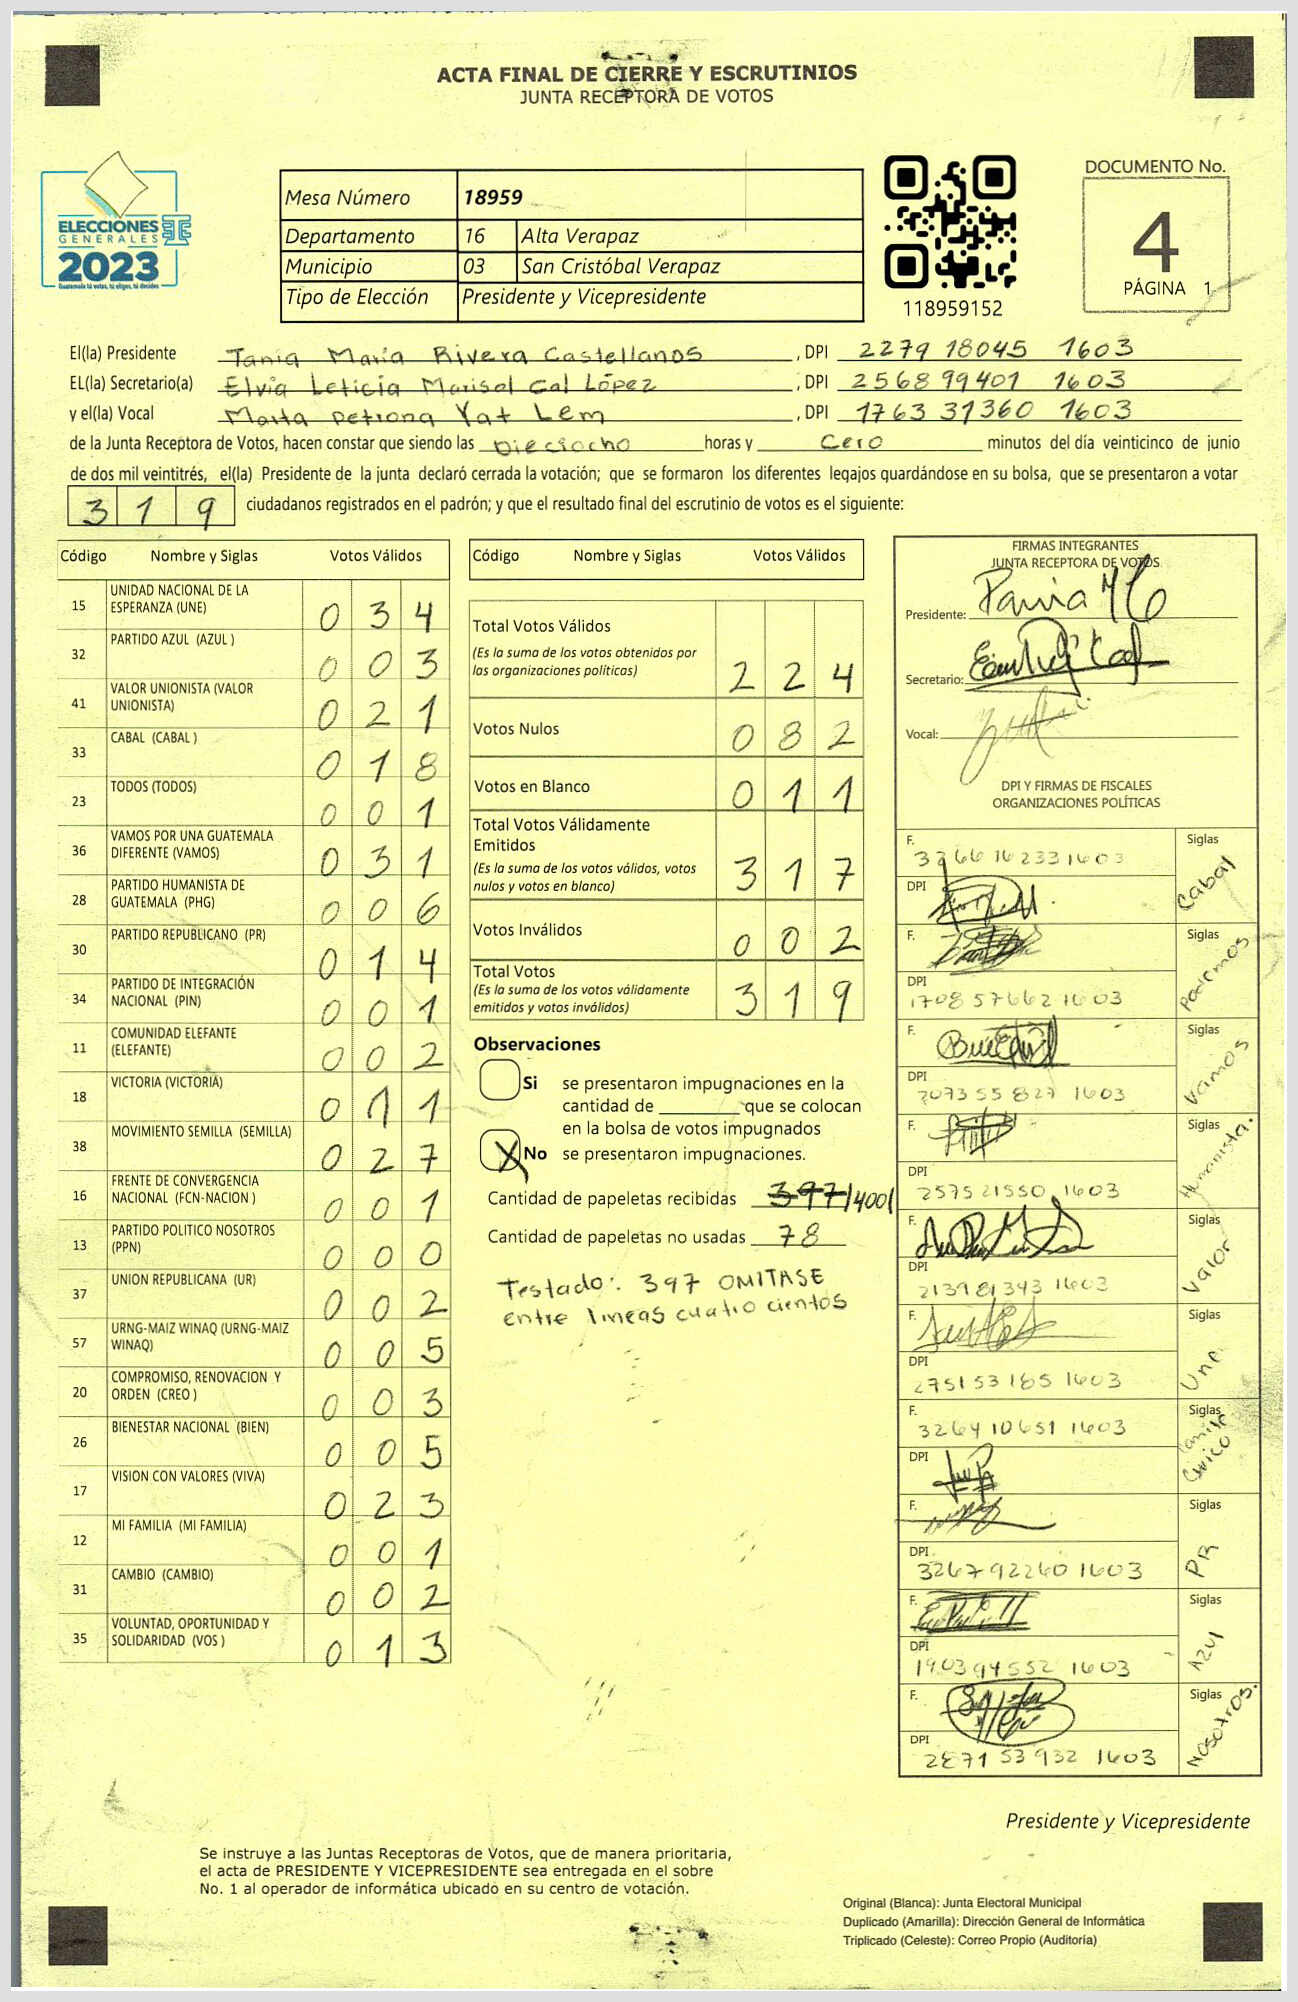 ACTA FINAL DE CIERRE Y ESCRUTINIOS
JUNTA RECEPTORA DE VOTOS
ELECCIONES
GENERALES
2023
Guatemala tú votas, tú eliges, tú decides
Mesa Número 18959
Departamento 16 Alta Verapaz
Municipio 03 San Cristóbal Verapaz
Tipo de Elección Presidente y Vicepresidente
118959152
DOCUMENTO No.
4
PÁGINA 1
El(la) Presidente Tania María Rivera Castellanos, DPI 2279 18045 1603
EL(la) Secretario(a) Elvia Leticia Marisol Cal López, DPI 2568 99401 1603
y el(la) Vocal Marta Petrona Yat Lem, DPI 1763 31360 1603
de la Junta Receptora de Votos, hacen constar que siendo las Dieciocho horas y Cero minutos del día veinticinco de junio
de dos mil veintitrés, el(la) Presidente de la junta declaró cerrada la votación; que se formaron los diferentes legajos quardándose en su bolsa, que se presentaron a votar
319 ciudadanos registrados en el padrón; y que el resultado final del escrutinio de votos es el siguiente:
Código Nombre y Siglas Votos Válidos
15 UNIDAD NACIONAL DE LA ESPERANZA (UNE) 034
32 PARTIDO AZUL (AZUL ) 003
41 VALOR UNIONISTA (VALOR UNIONISTA) 021
33 CABAL (CABAL ) 018
23 TODOS (TODOS) 001
36 VAMOS POR UNA GUATEMALA DIFERENTE (VAMOS) 031
28 PARTIDO HUMANISTA DE GUATEMALA (PHG) 006
30 PARTIDO REPUBLICANO (PR) 014
34 PARTIDO DE INTEGRACIÓN NACIONAL (PIN) 001
11 COMUNIDAD ELEFANTE (ELEFANTE) 002
18 VICTORIA (VICTORIA) 011
38 MOVIMIENTO SEMILLA (SEMILLA) 027
16 FRENTE DE CONVERGENCIA NACIONAL (FCN-NACION ) 001
13 PARTIDO POLITICO NOSOTROS (PPN) 000
37 UNION REPUBLICANA (UR) 002
57 URNG-MAIZ WINAQ (URNG-MAIZ WINAQ) 005
20 COMPROMISO, RENOVACION Y ORDEN (CREO ) 003
26 BIENESTAR NACIONAL (BIEN) 005
17 VISION CON VALORES (VIVA) 023
12 MI FAMILIA (MI FAMILIA) 001
31 CAMBIO (CAMBIO) 002
35 VOLUNTAD, OPORTUNIDAD Y SOLIDARIDAD (VOS ) 013
Código Nombre y Siglas Votos Válidos
Total Votos Válidos 224
(Es la suma de los votos obtenidos por
las organizaciones políticas)
Votos Nulos 082
Votos en Blanco 011
Total Votos Válidamente
Emitidos 317
(Es la suma de los votos válidos, votos
nulos y votos en blanco)
Votos Inválidos 002
Total Votos 319
(Es la suma de los votos válidamente
emitidos y votos inválidos)
Observaciones
Si se presentaron impugnaciones en la
cantidad de ________ que se colocan
en la bolsa de votos impugnados
X No se presentaron impugnaciones.
Cantidad de papeletas recibidas 397/400/
Cantidad de papeletas no usadas 78
Testado: 397 OMITASE
entre lineas cuatro cientos
FIRMAS INTEGRANTES
JUNTA RECEPTORA DE VOTOS
Presidente:
Secretario:
Vocal:
DPI Y FIRMAS DE FISCALES
ORGANIZACIONES POLÍTICAS
F. 3266 16233 1603 Siglas
DPI Cabal
F. Siglas
DPI 1708 57662 1603 Podemos
F. Siglas
DPI 2073 55 827 1603 Vamos
F. Siglas
DPI 2575 21550 1603 Humanista.
F. Siglas
DPI 2139 81343 1603 Valor
F. Siglas
DPI 2751 53 185 1603 Une.
F. 3264 10651 1603 Siglas
DPI Civico
F. Siglas
DPI 3267 92260 1603 PR
F. Siglas
DPI 1903 94552 1603 Azul
F. Siglas
DPI 2871 53 932 1603 Nosotros.
Presidente y Vicepresidente
Se instruye a las Juntas Receptoras de Votos, que de manera prioritaria,
el acta de PRESIDENTE Y VICEPRESIDENTE sea entregada en el sobre
No. 1 al operador de informática ubicado en su centro de votación.
Original (Blanca): Junta Electoral Municipal
Duplicado (Amarilla): Dirección General de Informática
Triplicado (Celeste): Correo Propio (Auditoría)